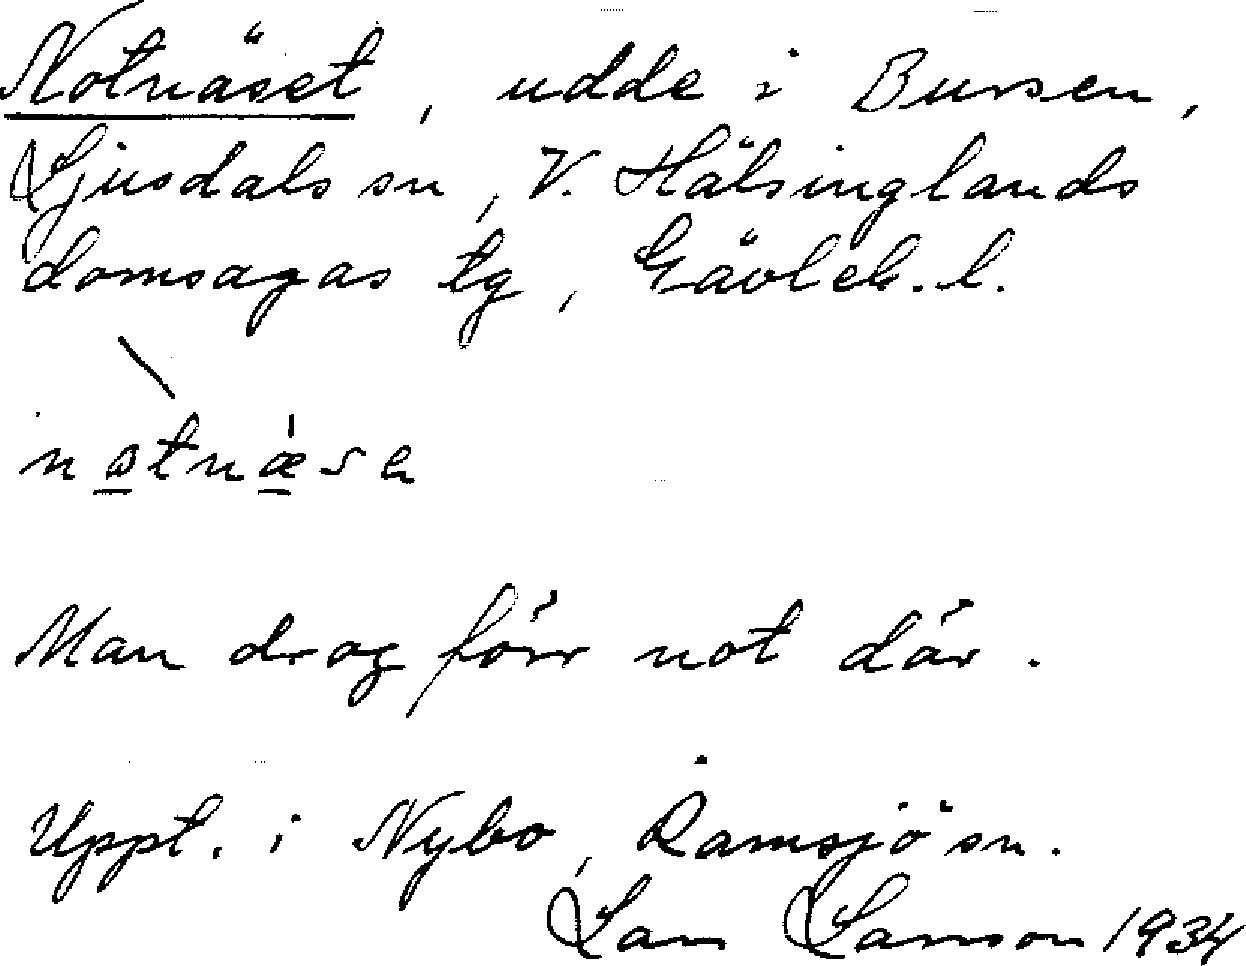 Notnäset, udde i Bursen,
Ljusdals sn, V. Hälsinglands
domsagas tg, Gävleb. l.
nøtnæsa
Man drog förr not där.
Uppt. i Nybo, Ramsjö sn.
Lars Larsson 1934